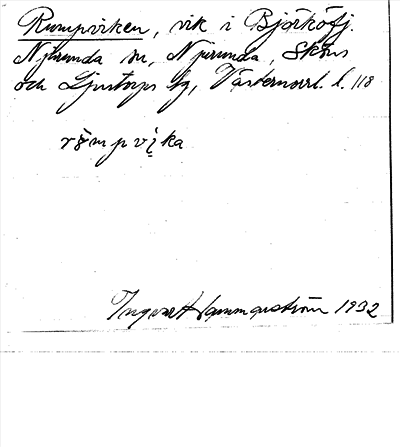 Rumpviken, vik i Björköfj.
Njurunda sn, Njurunda, Sköns
och Ljustorps tg, Västernorrl. l. 118
römpvika
Ingvar Hammarström 1932